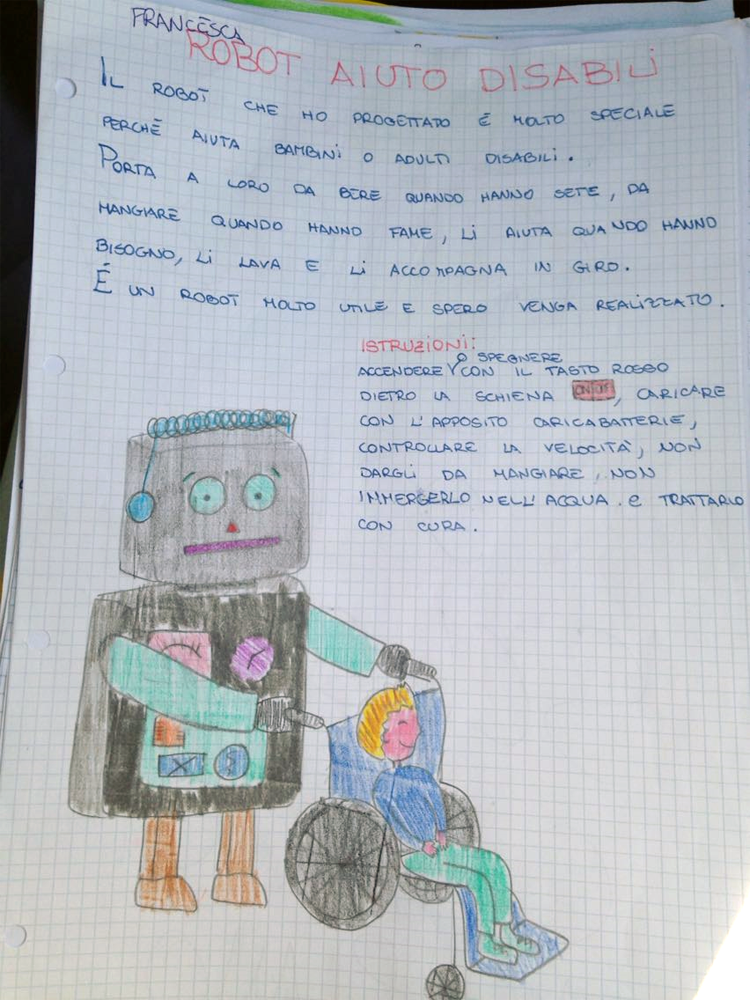 FRANCESCA
ROBOT AIUTO DISABILI
IL ROBOT CHE HO PROGETTATO É MOLTO SPECIALE
PERCHÉ AIUTA BAMBINI O ADULTI DISABILI.
PORTA A LORO DA BERE QUANDO HANNO SETE, DA
MANGIARE QUANDO HANNO FAME, LI AIUTA QUANDO HANNO
BISOGNO, LI LAVA E LI ACCOMPAGNA IN GIRO.
É UN ROBOT MOLTO UTILE E SPERO VENGA REALIZZATO.
ISTRUZIONI:
O SPEGNERE
ACCENDERE CON IL TASTO ROSSO
DIETRO LA SCHIENA ON/OFF, CARICARE
CON L'APPOSITO CARICABATTERIE,
CONTROLLARE LA VELOCITA', NON
DARGLI DA MANGIARE, NON
IMMERGERLO NELL'ACQUA. E TRATTARLO
CON CURA.